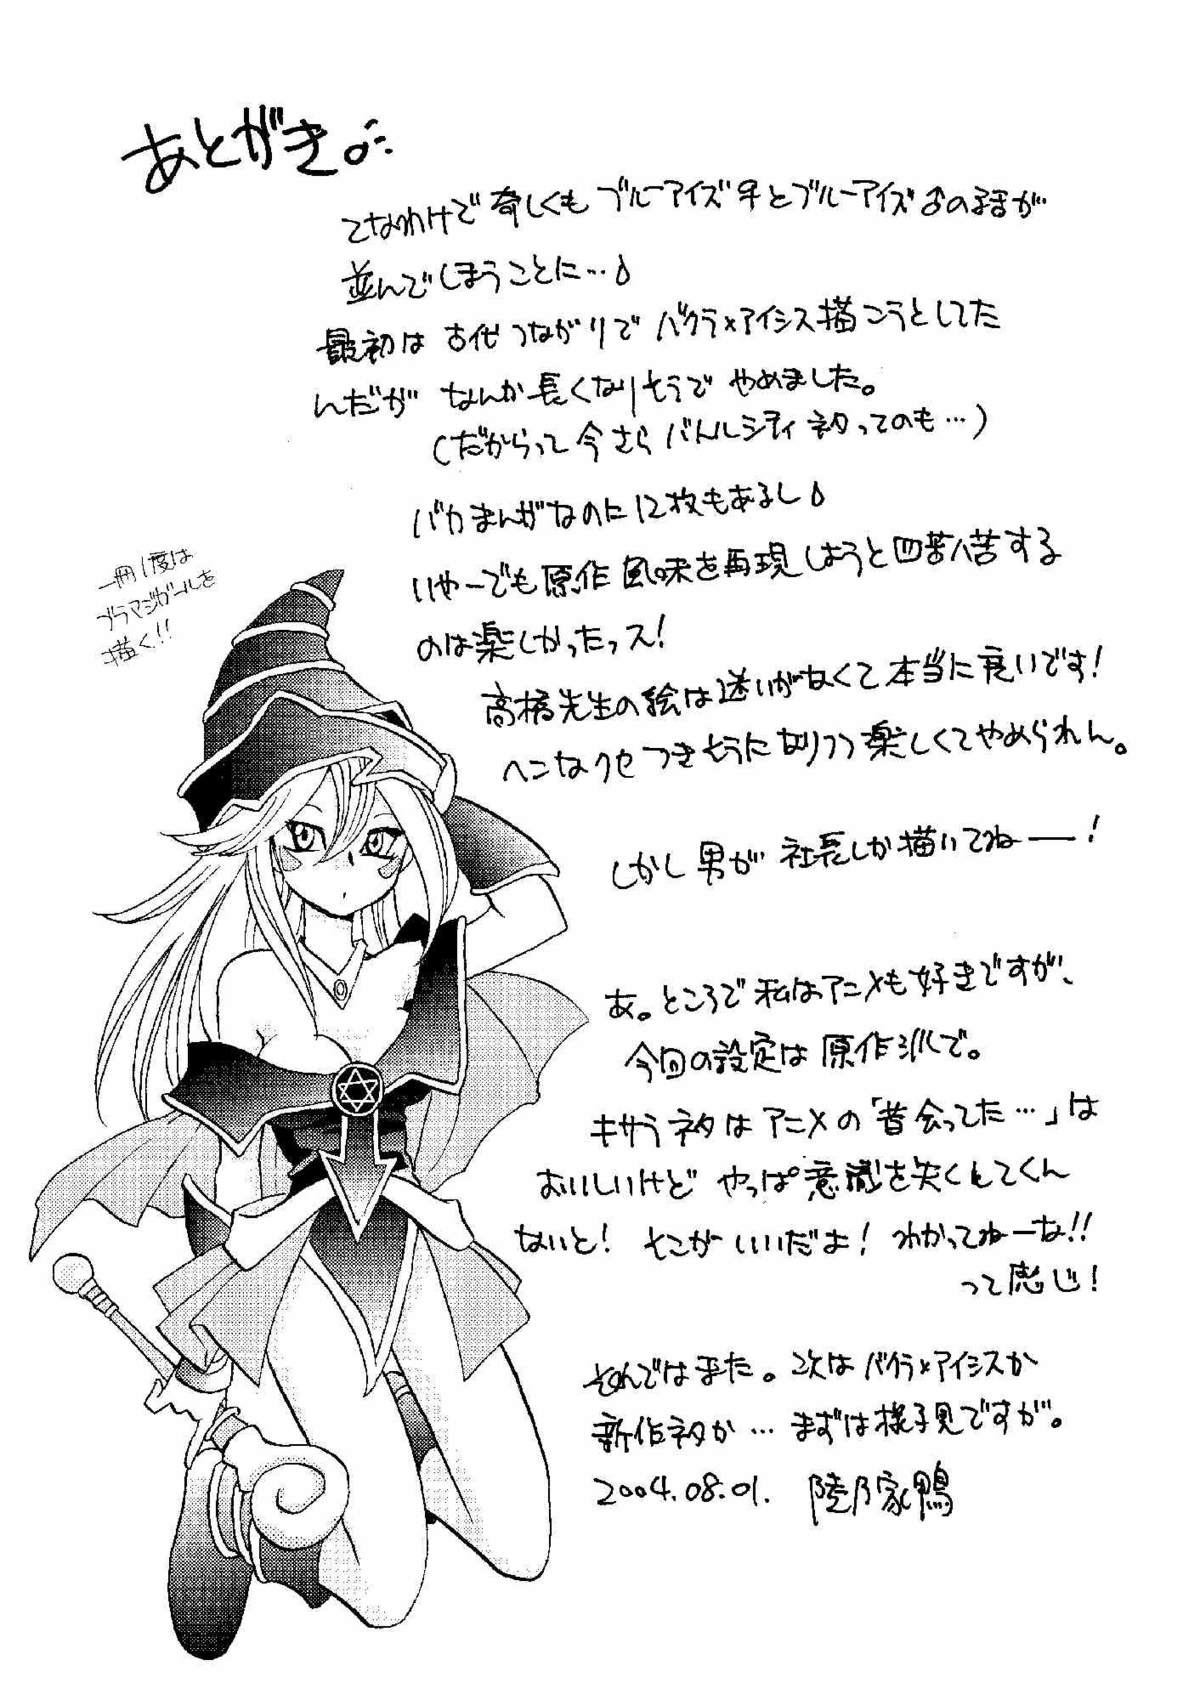 あとがき。
てなわけで奇しくもブルーアイズ♀とブルーアイズ♂の話が
並んでしまうことに…♪
最初は古代つながりでバクラ×アイシス描こうとしてた
んだが なんか長くなりそうで やめました。
(だからって今さらバトルシティネタってのも…)
バカまんがなのに12枚もあるし♪
いやーでも原作風味を再現しようと四苦八苦する
のは楽しかったっス!
高橋先生の絵は迷いがなくて本当に良いです!
ヘンなクセつきそうになりつつ楽しくてやめられん。
しかし男が社長しか描いてねーー!
あ。ところで私はアニメも好きですが、
今回の設定は原作派で。
キサラネタはアニメの「昔会ってた…」は
おいしいけど やっぱ意識を失くしてくん
ないと! そこがいいだよ! わかってねーな!!
って感じ!
それではまた。次はバクラ×アイシスか
新作ネタか…まずは様子見ですが。
2004.08.01. 陸乃家鴨
一冊1度は
ブラマジガールを
描く!!